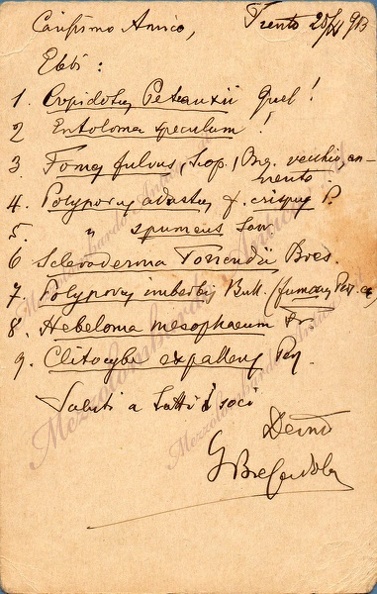 Carissimo Amico, Trento 25/XI 913
Ebbi:
1. Crepidotus Peteauxii Quel!
2 Entoloma speculum !
3 Fomes fulvus, Scop., Org. vecchio, an-
nerito!
4. Polyporus adustus f. crispus P.
5. " spumeus Sow
6 Scleroderma Torrendii Bres.
7. Polyporus imberbis Bull. (fumosus Per.
8. Hebeloma mesophaeum Fr
9. Clitocybe expallens Per
Saluti a tutti i soci
Devmo
GBresadola